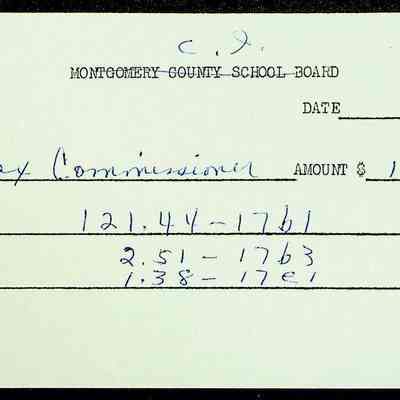 C. I.
MONTGOMERY COUNTY SCHOOL BOARD
DATE
Commissioner AMOUNT $ 1
121.44-17b1
2.51-17b3
1.38-17e1